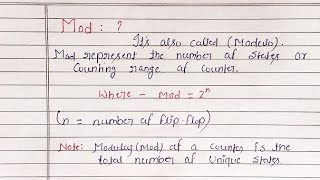 Mod : ?
It's also called (Modulo).
Mod represent the number of states or
Counting range of counter.
Where - Mod = 2ⁿ
(n = number of flip-flop)
Note: Modulus (Mod) of a counter is the
total number of Unique states